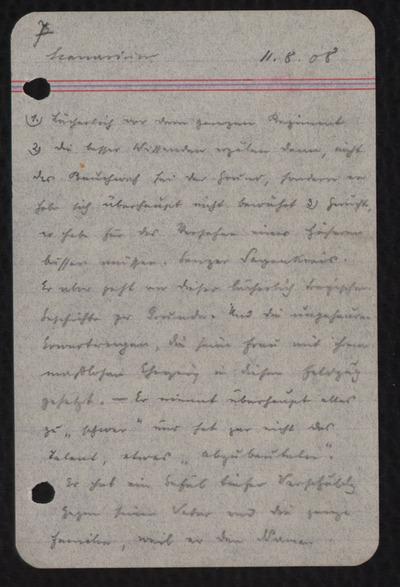 7
Scenarium 11.8.08
(1) Lächerlich vor dem ganzen Regiment
2) die besser Wissenden erzälen dann, nicht
das Bauchweh sei der Grund, sondern er
habe sich überhaupt nicht bewährt 3) Gerücht,
er habe für das Versehen eines Höheren
büssen müssen. Ganzer Sagenkreis.
Er aber geht an dieser lächerlich tragischen
Geschichte zu Grunde. Und die ungeheuren
Erwartungen, die seine Frau mit ihrem
maßlosen Ehrgeiz in diesen Feldzug
gesetzt. — Er nimmt überhaupt alles
zu „schwer" und hat gar nicht das
Talent, etwas „abzubeuteln".
Er hat ein Gefühl tiefer
gegen seinen Vater und die ganze
Familie, weil er den Namen